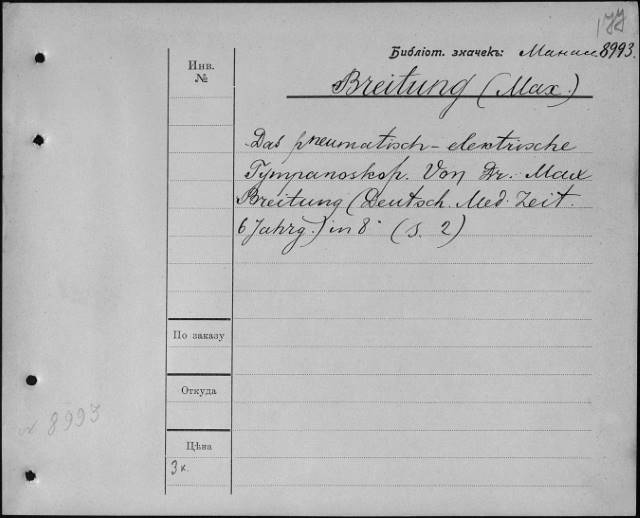 177
Библіот. значекъ: Манасс 8993.
Инв.
№
Breitung (Max.)
Das pneumatisch-elektrische
Tympanoskop. Von Dr. Max
Breitung (Deutsch. Med. Zeit.
6 Jahrg.) in 8° (S. 2)
По заказу
Откуда
№ 8993
Цѣна
3 к.